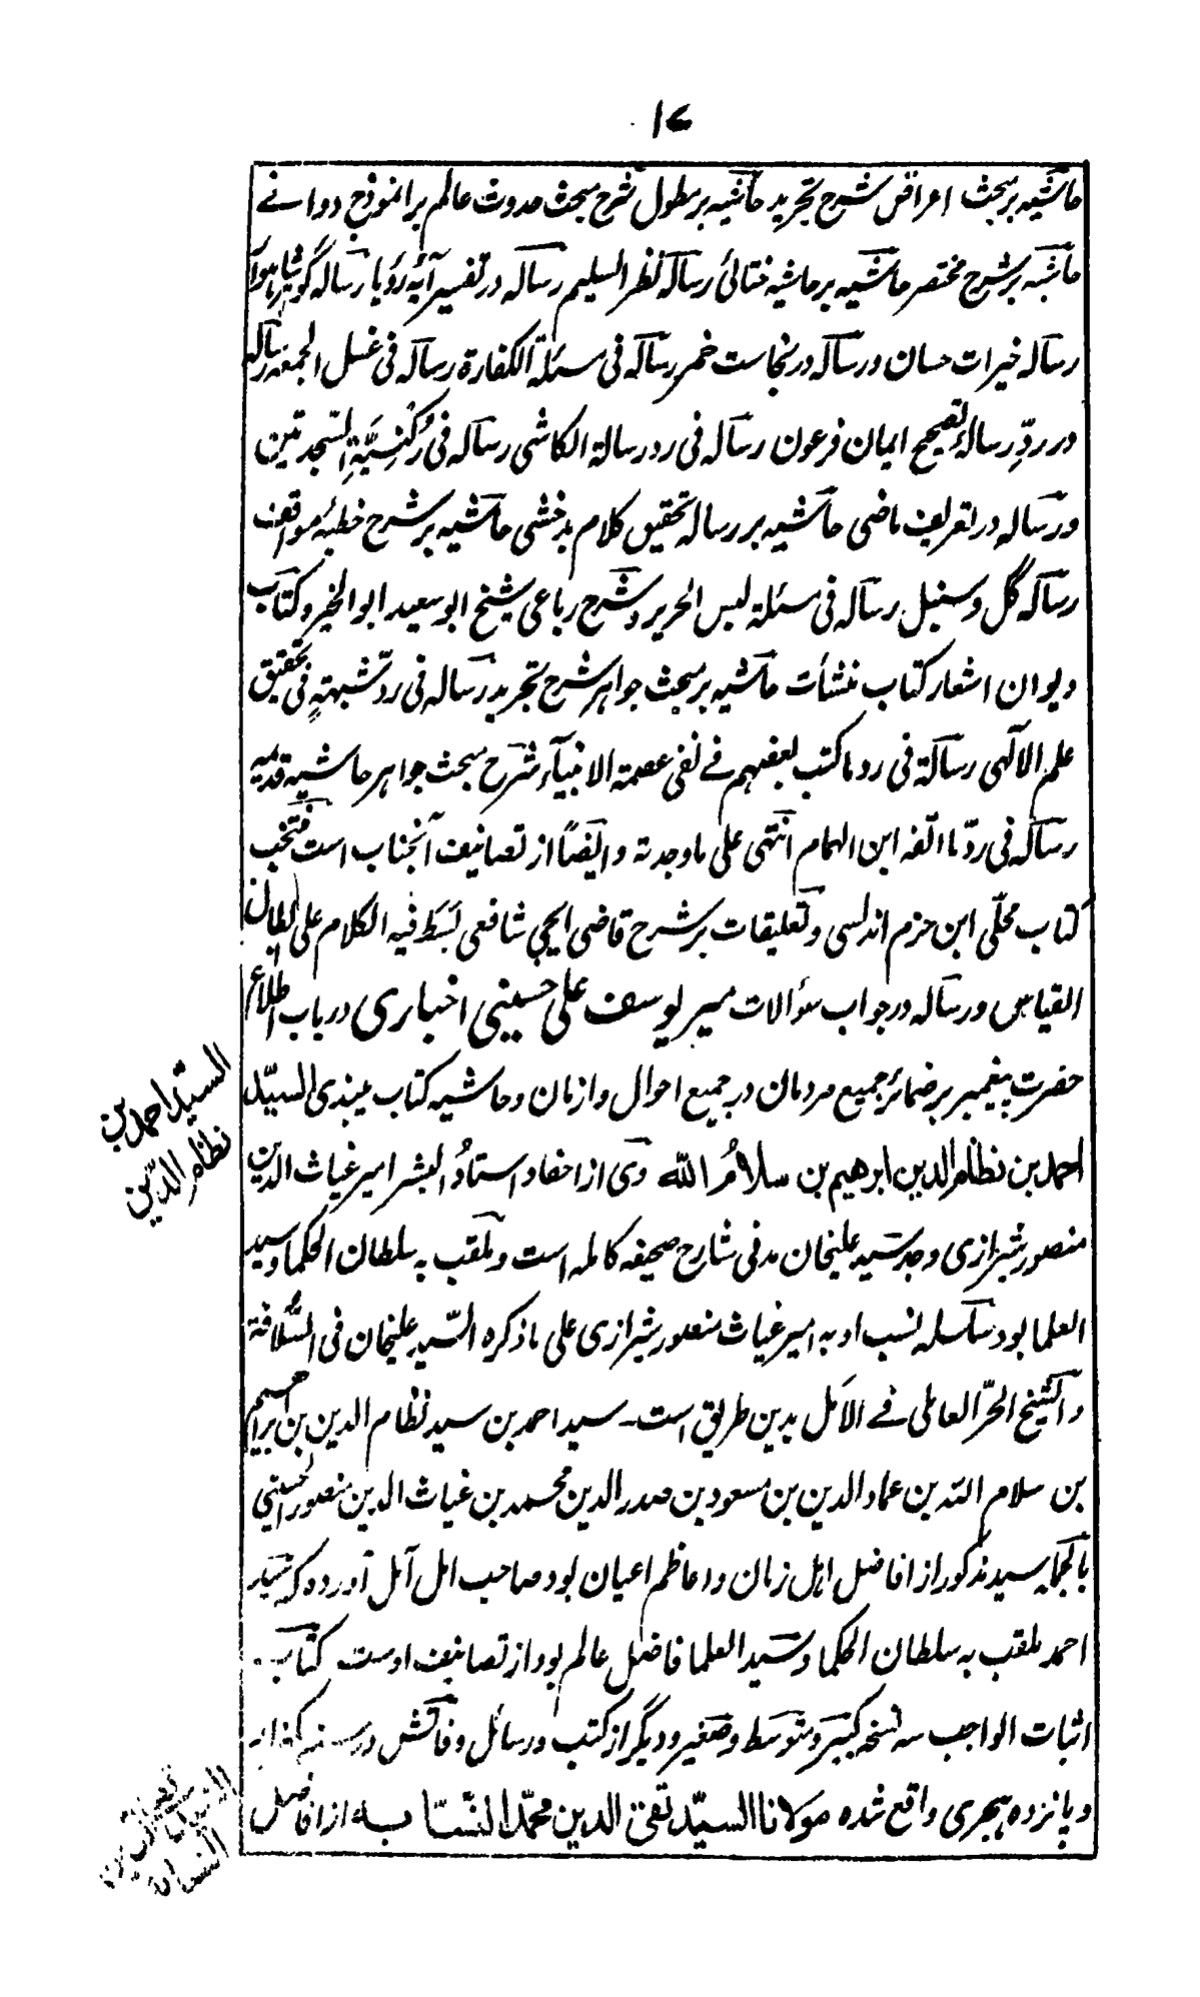 ١٧
حاشیه بر مبحث اعراض شرح تجرید حاشیه بر مطول شرح مبحث حدوث عالم بر انموذج دوانے
حاشیه بر شرح مختصر حاشیه بر حاشیه ختائی رساله نظر السلیم رساله در تفسیر آیهٔ رؤیا رساله گوهر شاهوار
رساله خیرات حسان و رساله در نجاست خمر رساله فی مسئلة الکفارة رساله فی غسل الجمعه رساله
در ردِّ رسالهٔ تصحیح ایمان فرعون رساله فی رد رسالة الکاشی رساله فی رُکنِیَّةِ السجدتین
و رساله در تعریف ماضی حاشیه بر رساله تحقیق کلام بدخشی حاشیه بر شرح خطبهٔ مواقف
رساله گل و سنبل رساله فی مسئلة لبس الحریر و شرح رباعی شیخ ابو سعید ابو الخیر و کتاب
دیوان اشعار کتاب منشأت حاشیه بر مبحث جواهر شرح تجرید رساله فی ردّ شبهةٍ فی تحقیق
علم الالٰهی رسالة فی رد ما کتب بعضهم فے نفی عصمة الانبیآء شرح مبحث جواهر حاشیه قدیمه
رساله فی ردّ ما الّفه ابن الهمام انتهی علی ما وجدته و ایضاً از تصانیف آنجناب است منتخب
کتاب محلّی ابن حزم اندلسی و تعلیقات بر شرح قاضی ایجی شافعی بَسَطَ فیه الکلام علی ابطال
القیاس و رساله در جواب سؤالات میر یوسف علی حسینی اخباری در باب اطلاع
حضرت پیغمبر بر ضمائر جمیع مردمان در جمیع احوال و ازمان و حاشیه کتاب میبذی السیّد
احمد بن نظام الدین ابراهیم بن سلامُ الله وی از احفاد استادُ البشر امیر غیاث الدین
منصور شیرازی و جد سید علیخان مدنی شارح صحیفه کامله است و ملقب به سلطان الحکما و سید
العلما بود سلسله نسب او به امیر غیاث منصور شیرازی علی ما ذکره السّید علیخان فی السُّلافة
و الشیخ الحرّ العاملی فے الامل بدین طریق است۔ سید احمد بن سید نظام الدین بن ابراهیم
بن سلام اللّه بن عماد الدین بن مسعود بن صدر الدین محمد بن غیاث الدین منصور الحسینی
بالجمله سید مذکور از افاضل اهل زمان و اعاظم اعیان بود صاحب امل آمل آورده که سید
احمد ملقب به سلطان الحکما و سید العلما فاضل عالم بود از تصانیف اوست کتاب
اثبات الواجب سه نسخه کبیر و متوسط و صغیر و دیگر از کتب و رسائل وفاتش در سنه هزار
و پانزده هجری واقع شده مولانا السیّد تقی الدین محمّد النسّابه از افاضل
السیّد احمد بن
نظام الدّین
النسابه